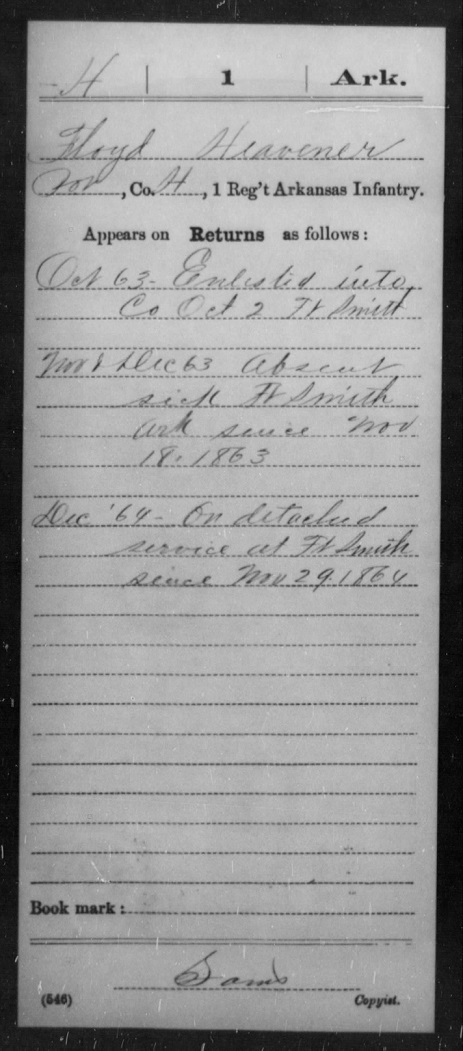 H | 1 | Ark.
Floyd Heavener
, Co. H, 1 Reg't Arkansas Infantry.
Appears on Returns as follows:
Oct 63 - Enlisted into
Co Oct 2 Ft Smith
Nov & Dec 63 Absent
sick Ft Smith
Ark since Nov
18. 1863
Dec '64 - On detached
service at Ft Smith
since Nov 29. 1864
Book mark:
(546) Copyist.